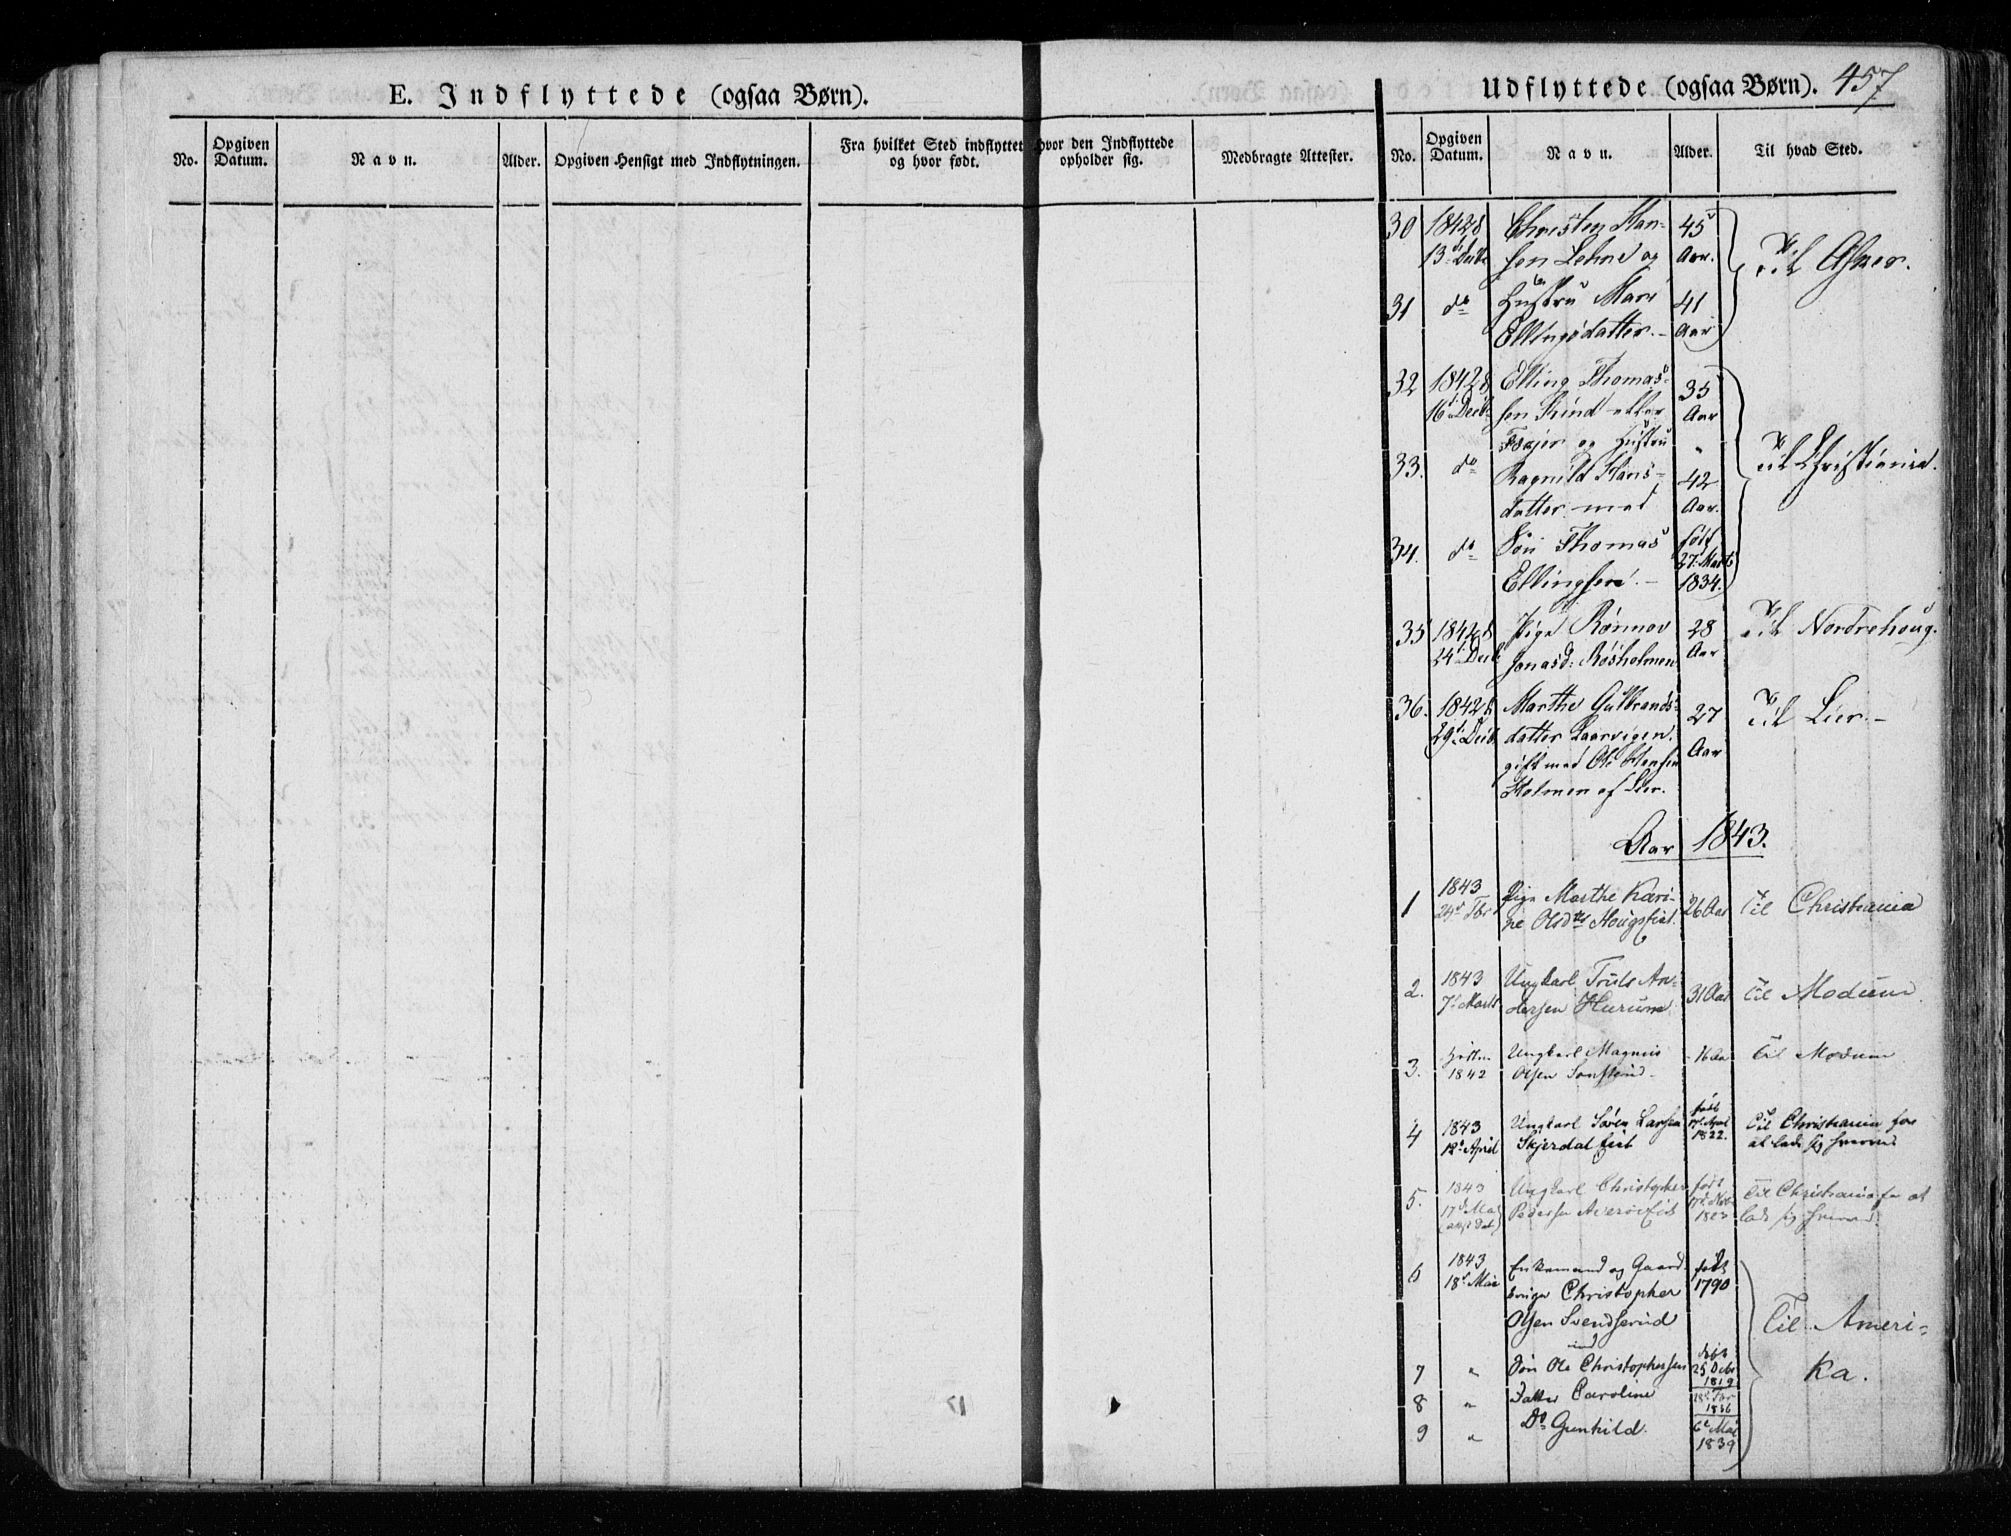 E. Indflyttede (ogsaa Børn).
No. Opgiven Datum. Navn. Alder. Opgiven Hensigt med Indflytningen. Fra hvilket Sted indflyttet og hvor født. Hvor den Indflyttede opholder sig. Medbragte Attester.
Udflyttede (ogsaa Børn). 457
No. Opgiven Datum. Navn. Alder. Til hvad Sted.
30 1842 Christen Han- 45
13 Decb sen Lehne og Aar. Til Asker.
31 do Hustru Mari 41
Ellingsdatter. – Aar
32 1842 Elling Thomas- 35
16 Decb sen Aar
og Hustru
33. do Ragnild Hans- 42 Til Christiania.
datter med Aar.
34. do Søn Thomas født
Ellingsen. – 27 Marts 1834.
35 1842 Pige Rønnov 28 Til Nordrehoug.
24 Decb Jonasd: Røsholmen Aar
36. 1842 Marthe Gulbrands- 27 Til Lier. –
29 Decb datter Laarvigen. Aar
gift med Ole Hansen
Holmen af Lier.
Aar 1843.
1 1843 Pige Marthe Kari- 26 Aar Til Christiania
24 Fbr ne Olsdtr Hougsfiat.
2. 1843 Ungkarl Truls An- 31 Aar Til Modum
7 Marts dersen Hurum
3. Høsten Ungkarl Magnus 16 Aar Til Modum
1842 Olsen
4 1843 Ungkarl Søren Larsen født Til Christiania for
12 April Skjerdal 1822. at lade sig hverve
5. 1843 Ungkarl Christopher født Til Christiania for at
17 Mai Pedersen 1823 lade sig hverve.
6 1843 Enkemand og Gaard- født
18 Mai bruger Christopher 1790
Olsen Svendserud Til Ameri-
med
7 " Søn Ole Christophersen født 25 Decbr 1819 ka.
8 " Datter Caroline 1836
9 " Do Gunhild. 6 Mai 1839